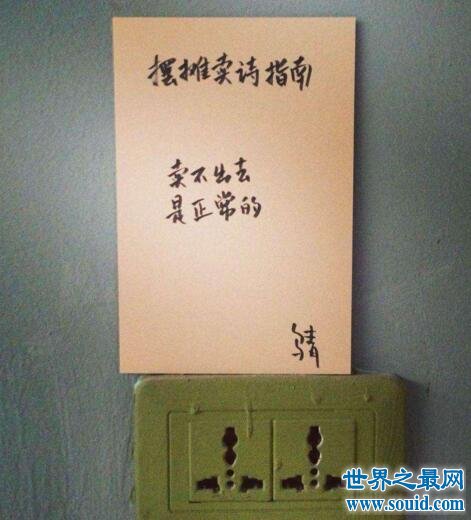 摆摊卖诗指南
卖不出去
是正常的
世界之最网
www.souid.com